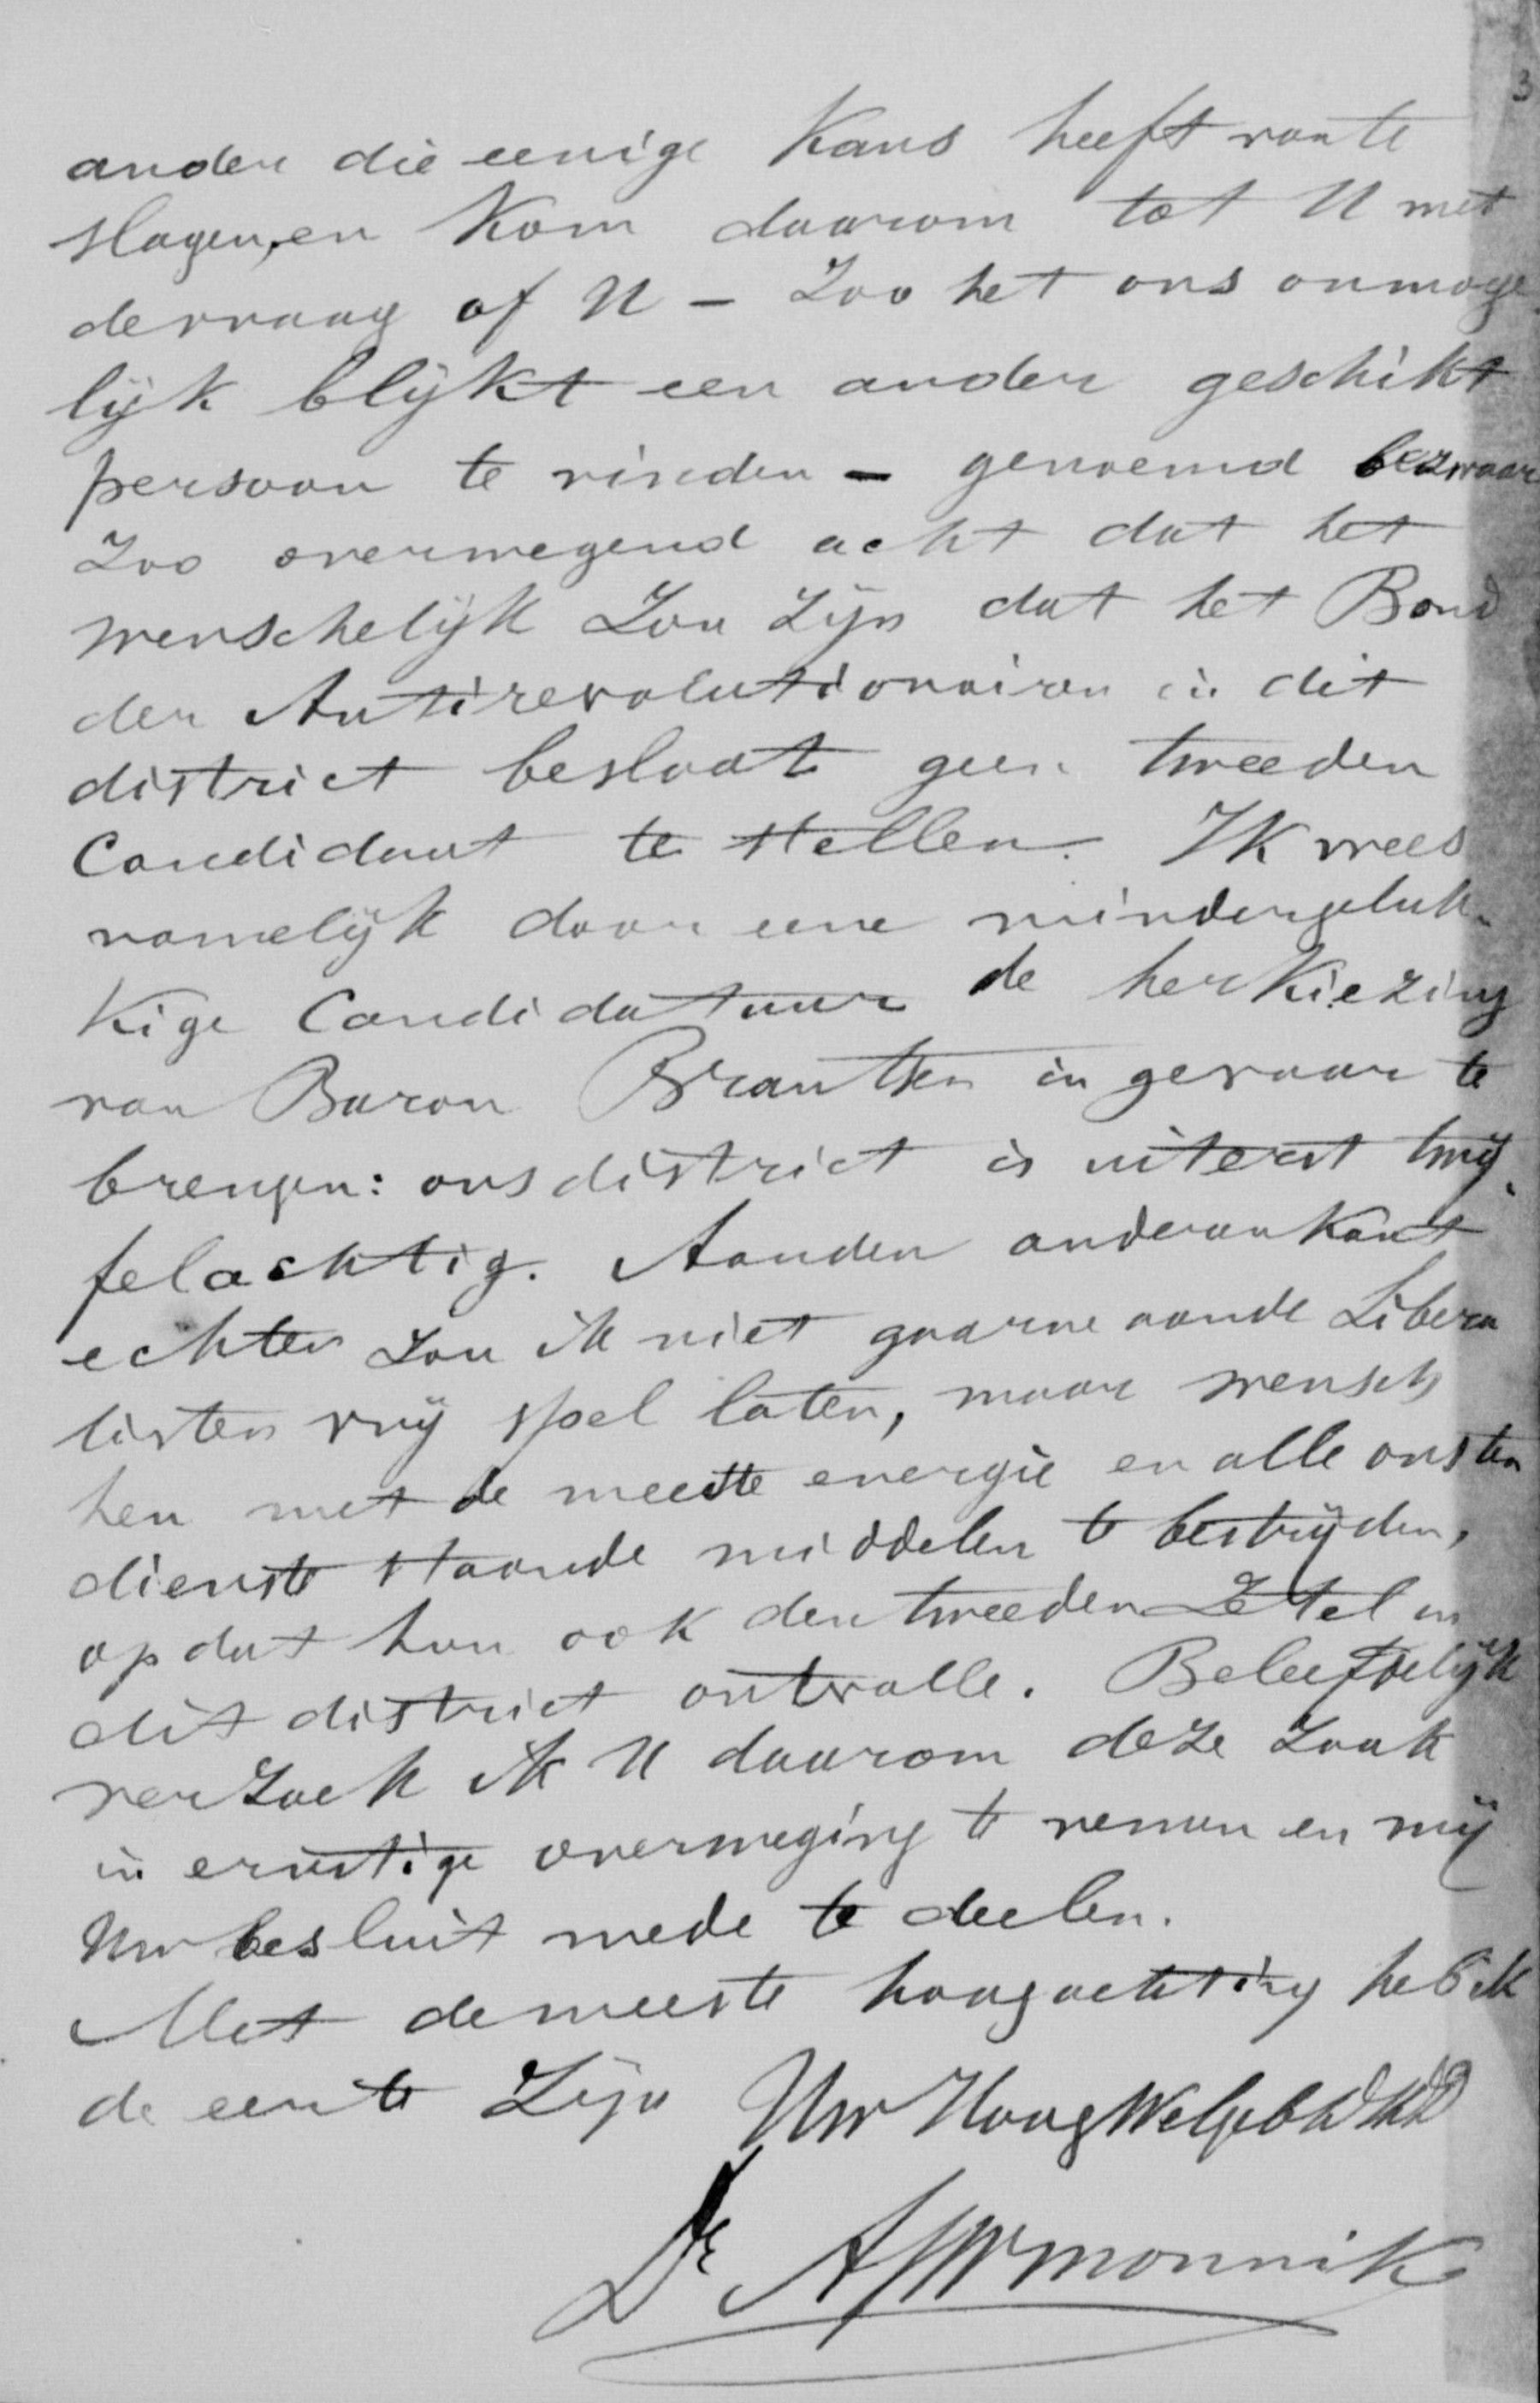 3
ander die eenige kans heeft van te
slagen, en kom daarom tot U met
de vraag of U – zoo het ons onmoge
lijk blijkt een ander geschikt
persoon te vinden – genoemd bezwaar
zoo overwegend acht dat het
wenschelijk zou zijn dat het Bond
der Antirevolutionairen in dit
district besloot geen tweeden
Candidaat te stellen. Ik vrees
namelijk door eene mindergeluk-
kige Candidatuur de herkiezing
van Baron Brantsen in gevaar te
brengen: ons district is uiterst twij
felachtig. Aan den anderen kant
echter zou ik niet gaarne aan de Libera
listen vrij spel laten, maar wensch
hen met de meeste energie en alle ons ten
dienste staande middelen te bestrijden,
opdat hun ook den tweeden Zetel in
dit district ontvalle. Beleefdelijk
verzoek ik U daarom deze zaak
in ernstige overweging te nemen en mij
Uw besluit mede te deelen.
Met de meeste hoogachting heb ik
de eer te zijn Uw HoogWelgeb
Dr Monnik